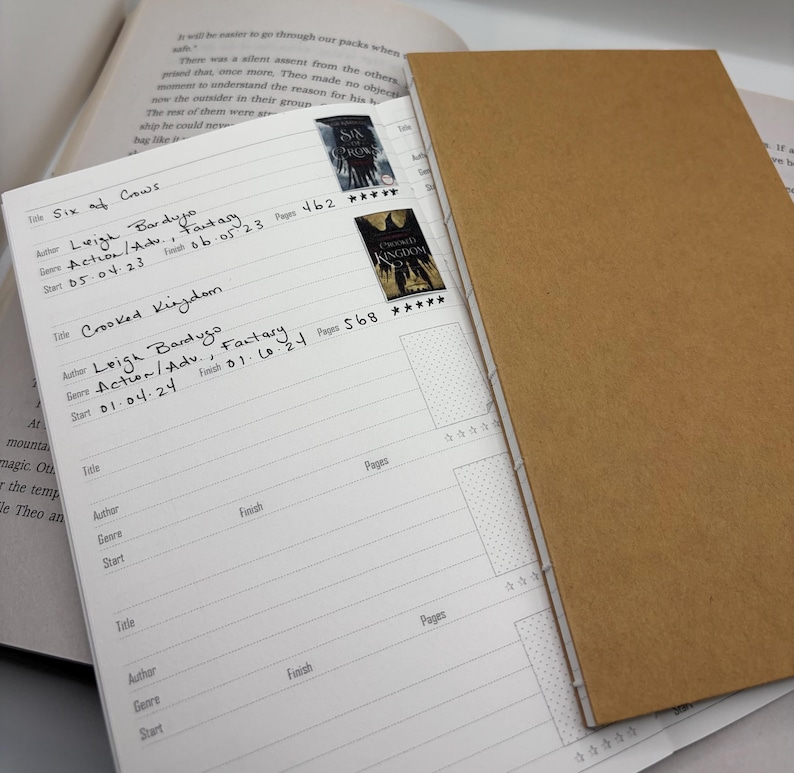 It will be easier to go through our packs when
safe."
There was a silent assent from the others.
prised that, once more, Theo made no objecti
moment to understand the reason for his
now the outsider in their group
The rest of them were
ship he could neve
bag like it
SIX OF CROWS
Title Six of Crows
Author Leigh Bardugo
Genre Action/Adv., Fantasy
Start 05.04.23 Finish 06.05.23 Pages 462 ★★★★★
CROOKED KINGDOM
Title Crooked Kingdom
Author Leigh Bardugo
Genre Action/Adv., Fantasy
Start 01.04.24 Finish 01.10.24 Pages 568 ★★★★★
Title
Author
Genre
Start Finish Pages
☆☆☆☆☆
Title
Author
Genre
Start Finish Pages
☆☆☆
☆☆☆☆☆
Title
Start
Start
At
mounta
magic.
r the temp
le Theo an
If a